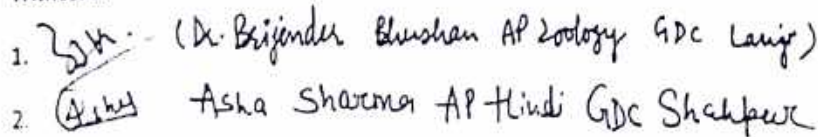 1. (Dr. Brijender Bhushan AP Zoology GDC
2. Asha Sharma AP Hindi GDC Shahpur